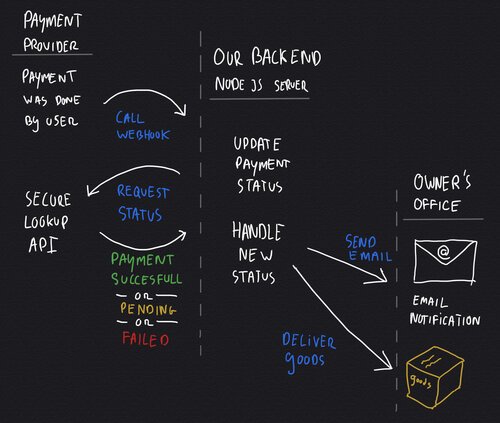 PAYMENT
PROVIDER
PAYMENT
WAS DONE
BY USER
CALL
WEBHOOK
SECURE
LOOKUP
API
REQUEST
STATUS
PAYMENT
SUCCESFULL
OR
PENDING
OR
FAILED
OUR BACKEND
NODE JS SERVER
UPDATE
PAYMENT
STATUS
HANDLE
NEW
STATUS
SEND
EMAIL
DELIVER
GOODS
OWNER'S
OFFICE
@
EMAIL
NOTIFICATION
goods